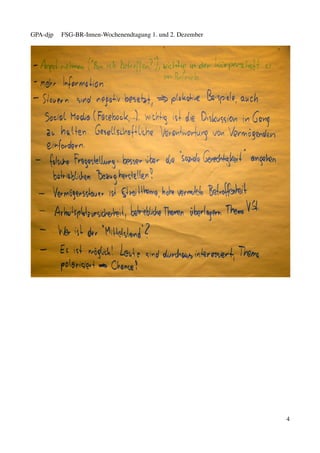 GPA-djp FSG-BR-Innen-Wochenendtagung 1. und 2. Dezember
- Angst nehmen ("Bin ich betroffen?"), wichtig in der Körperschaft
im Betrieb
- mehr Information
- Steuern sind negativ besetzt, ⇒ plakative Beispiele, auch
Social Media (Facebook...). Wichtig ist die Diskussion in Gang
zu halten. Gesellschaftliche Verantwortung von Vermögenden
einfordern.
- falsche Fragestellung - besser über die "soziale Gerechtigkeit" angehen
betrieblichen Bezug herstellen?
- Vermögenssteuer ist Streitthema, hohe vermutete Betroffenheit
- Arbeitsplatzunsicherheit, betriebliche Themen überlagern Thema VSt.
- Wer ist der "Mittelstand"?
- Es ist möglich! Leute sind durchaus interessiert, Thema
polarisiert ⇒ Chance!
4